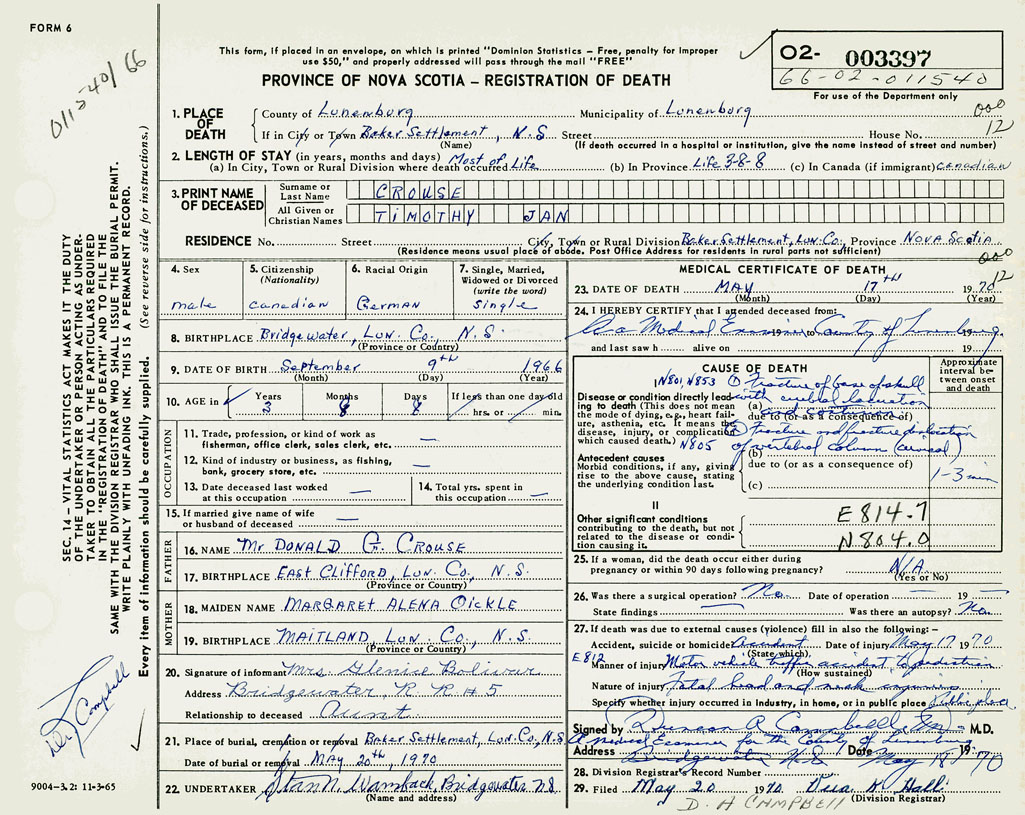 FORM 6
011540/66
This form, if placed in an envelope, on which is printed "Dominion Statistics – Free, penalty for improper
use $50," and properly addressed will pass through the mail "FREE"
PROVINCE OF NOVA SCOTIA – REGISTRATION OF DEATH
02- 003397
66-02-011540
For use of the Department only
000
12
1. PLACE OF DEATH
County of Lunenburg Municipality of Lunenburg
If in City or Town Baker Settlement, N.S Street House No.
(Name) (If death occurred in a hospital or institution, give the name instead of street and number)
2. LENGTH OF STAY (in years, months and days)
(a) In City, Town or Rural Division where death occurred Most of Life (b) In Province Life 3-8-8 (c) In Canada (if immigrant) Canadian
3. PRINT NAME OF DECEASED
Surname or Last Name CROUSE
All Given or Christian Names TIMOTHY JAN
RESIDENCE No. Street City, Town or Rural Division Baker Settlement, Lun. Co. Province NOVA SCOTIA
(Residence means usual place of abode. Post Office Address for residents in rural parts not sufficient)
000
12
4. Sex
male
5. Citizenship (Nationality)
Canadian
6. Racial Origin
German
7. Single, Married, Widowed or Divorced (write the word)
Single
8. BIRTHPLACE Bridgewater, Lun. Co., N.S
(Province or Country)
9. DATE OF BIRTH September 9th 1966
(Month) (Day) (Year)
10. AGE in Years Months Days If less than one day old
3 8 8 hrs. or min.
OCCUPATION
11. Trade, profession, or kind of work as fisherman, office clerk, sales clerk, etc. —
12. Kind of industry or business, as fishing, bank, grocery store, etc. —
13. Date deceased last worked at this occupation —
14. Total yrs. spent in this occupation —
15. If married give name of wife or husband of deceased —
FATHER
16. NAME Mr DONALD G. CROUSE
17. BIRTHPLACE EAST CLIFFORD, LUN. CO., N.S.
(Province or Country)
MOTHER
18. MAIDEN NAME MARGARET ALENA OICKLE
19. BIRTHPLACE MAITLAND, LUN. CO., N.S.
(Province or Country)
20. Signature of informant Mrs. Glenice Bolivar
Address Bridgewater, R R # 5
Relationship to deceased Aunt.
21. Place of burial, cremation or removal Baker Settlement, Lun. Co, N.S
Date of burial or removal MAY 20th, 1970
22. UNDERTAKER Stan N. Wambach, Bridgewater NS
(Name and address)
MEDICAL CERTIFICATE OF DEATH
23. DATE OF DEATH MAY 17th 1970
(Month) (Day) (Year)
24. I HEREBY CERTIFY that I attended deceased from:
As a Medical Examiner 19 to County of Lunenburg 19
and last saw h alive on 19
CAUSE OF DEATH
Approximate interval between onset and death
I N801, N853 ① Fracture of base of skull
Disease or condition directly leading to death (This does not mean the mode of dying, e.g., heart failure, asthenia, etc. It means the disease, injury, or complication which caused death.)
(a) with cerebral laceration
and contusion
due to (or as a consequence of)
② Fracture and fracture dislocation
N805 of vertebral column (cervical)
Antecedent causes
Morbid conditions, if any, giving rise to the above cause, stating the underlying condition last.
(b)
due to (or as a consequence of)
(c)
1-3 min
II
Other significant conditions contributing to the death, but not related to the disease or condition causing it.
E814.7
N804.0
25. If a woman, did the death occur either during pregnancy or within 90 days following pregnancy? N/A
(Yes or No)
26. Was there a surgical operation? No Date of operation — 19 —
State findings — Was there an autopsy? No
27. If death was due to external causes (violence) fill in also the following: –
Accident, suicide or homicide Accident Date of injury May 17 1970
(State which)
E812
Manner of injury Motor vehicle traffic accident to pedestrian
(How sustained)
Nature of injury Fatal head and neck injuries
Specify whether injury occurred in industry, in home, or in public place Public place
Signed by Duncan A Campbell M.D.
A Medical Examiner for the County of Lunenburg
Address Bridgewater N.S Date May 18 1970
28. Division Registrar's Record Number
29. Filed May 20 1970 Hall
(Division Registrar)
D. A CAMPBELL
SEC. 14 – VITAL STATISTICS ACT MAKES IT THE DUTY
OF THE UNDERTAKER OR PERSON ACTING AS UNDERTAKER
TO OBTAIN ALL THE PARTICULARS REQUIRED
IN THE "REGISTRATION OF DEATH" AND TO FILE THE
SAME WITH THE DIVISION REGISTRAR WHO SHALL ISSUE THE BURIAL PERMIT.
WRITE PLAINLY WITH UNFADING INK. THIS IS A PERMANENT RECORD.
Every item of information should be carefully supplied. (See reverse side for instructions.)
Dr Campbell
9004–3.2: 11-3-65